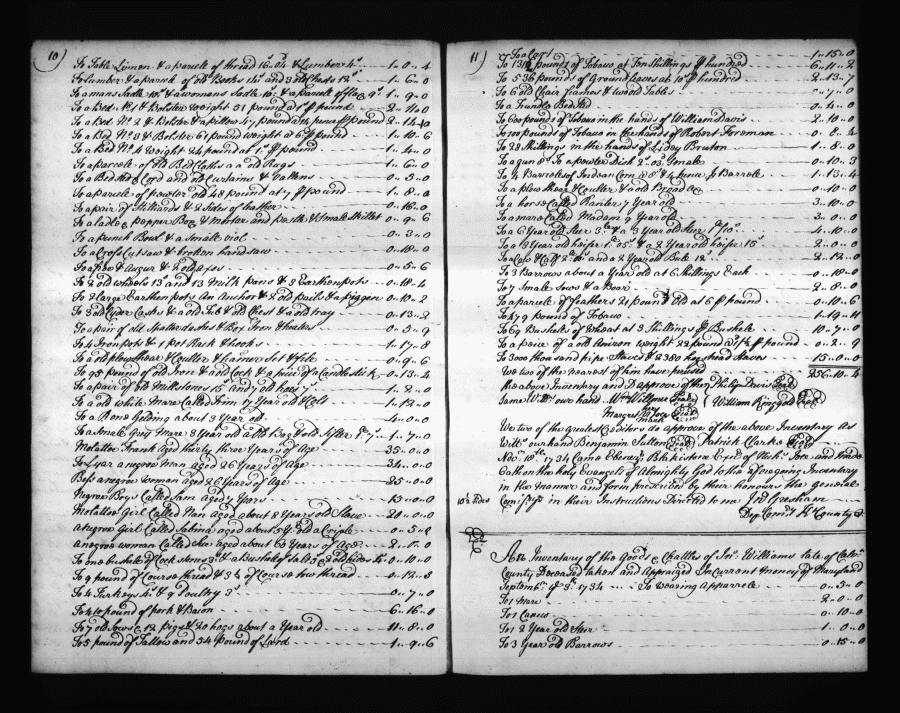 10)
To Table Linnen & a parcele of thread 16s. 0d & Lumber 4s 1..0..4
To lumber & a parcele of old Books 14s and 3 old hats 12s 1..6..0
To a mans Sadle 10s & a womans Sadle 10s & a parcele of flax 9s 1..9..0
To a Bed No. 1 & Bolster weight 51 pound at 1s p pound 2..11..0
To a Bed No. 2 & Bolster & a pillow 47 pound at the price p pound 2..14..10
To a Bed No. 3 & Bolster 61 pound weight at 6d p pound 1..10..6
To a Bed No. 4 weight 24 pound at 1s p pound 1..4..0
To a parcele of old Bed Cloths a a old Rugs 1..6..0
To a Bed Sted Cord and old Curtains & Vallens 0..5..0
To a parcele of pewter old 48 pound at 7d p pound 1..8..0
To a pair of Stiliards & 2 Sides of leather 0..16..0
To a ladle pepper Box & Morter and pestle & Smale Skillet 0..9..6
To a punch Bowl & a Smale viol 0..3..0
To a Cross Cut saw & broken handsaw 0..18..0
To Auger & 2 old axes 0..5..6
To 2 old wheels 13 and 13 Milk pans & 3 Earthen pots 0..18..4
To 2 large Earthen pots An Anchor & 2 old pails & a piggen 0..10..2
To 3 old Cyder Casks & a old Tub & old Chest & a old tray 0..13..2
To a pair of old Spatterdashes & Box Iron & heaters 0..5..9
To 4 Iron pots & 1 pot Rack & hooks 1..17..8
To a old plow Shear & Coulter & Learner Set & file 0..9..6
To 98 pound of old Iron & and Cock & a piece of a Candlestick 0..13..4
To a pair of old Millstones 15s and 7 old hoes 7s 1..2..0
To a old white Mare Called Trim 17 year old & Colt 1..12..0
To a Rone Gelding about 3 Year old 4..0..0
To a Smale Gray Mare 8 Year old & old Bag & old Sifter 1s..7 1..7..0
Molatto Frank aged thirty three Years of Age 35..0..0
To a negro Man aged 26 Years of Age 34..0..0
Bess a negro woman aged 26 Years of Age 25..0..0
Negro Boy Called Sam aged 7 Years 15..0..0
Molatto Girl Called Nan aged about 8 Years old Slave 20..0..0
a negro Girl Called Sabina aged about 5 Yr. old a Criple 0..5..0
a negro woman Called aged about 60 Years of Age 2..0..0
To one bushele of Cock stones & a Bushele of Salt 0..10..0
To 9 pound of Course thread & 3½ of Course tow thread 0..12..8
To 4 Turkeys 4s & 9 poultry 3s 0..7..0
To 410 pound of pork & Bacon 6..16..0
To 7 old Sows & 12 pigs & 20 hogs about a Year old 11..8..0
To 5 pound of Tallow and 34 pound of Lard 1..9..6
11)
1..15..0
To 1312 pound of Tobaco at Ten Shillings p hundred 6..11..2
To 536 pound of Ground leaves at 10s p hundred 2..13..7
To 6 old Chair frames & and old Table 0..7..0
To a Trundle Bed Sted 0..4..0
To 600 pounds of Tobaco in the hands of William Davis 2..10..0
To 100 pounds of Tobaco in the hands of Robert Foreman 0..8..4
To 28 Shillings in the hands of Liday Bruton 1..8..0
To a gun 8s To a pewter Dish 2s..03 Smale 0..10..3
To 4 Barrels of Indean Corn @ 8s & 4 hence p Barrele 1..13..4
To a plow Shear & Coulter & a old 0..10..0
To a horse Called Ranter 7 Year old 3..10..0
To a mare Called Madam 9 Year old 3..0..0
To a 6 Year old Steer 3 & a 3 Year old Steer 1 10s 4..10..0
To a 3 Year old heifer 1..05s & a 2 Year old heifer 15s 2..0..0
To a Cow & Calf 2..0s and a 2 Year old Bule 12s 2..12..0
To 3 Barrows about a Year old at 6 Shillings Each 0..10..0
To 7 Smale Sows & a Boar 2..8..0
To a parcele of feathers 21 pound Old at 6d p pound 0..10..6
To 479 pound of Tobaco 1..19..11
To 69 Bushells of Wheat at 3 Shillings p Bushele 10..7..0
To a peice of a old Anizon weight 22 pound at 1½ p pound 0..2..9
To 3000 thousand pipe Staves & 2380 hogshead Staves 15..0..0
We two of the nearest of kin have perused 256..10..4
the above Inventory and D approve of the Philip Davis Seal
Same Wittn. our hand Wm. Wilmer Seal William Ringgold Seal
Margret McGee Seal
mark
We two of the greatest Creditors do approve of the above Inventory As
Wittn. our hand Benjamin Sutton Seal Patrick Clark Seal
Novr. 18th. 1734 Came Ebenezr. Blackistone Exec. of the and made
Oath on the Holy Evangels of Almighty God to the aforegoing Inventory
in the manner and form prescribed by their honours the general
10½ Sides Comissys. in their Instructions Directed to me Jas. Gresham
Dep. Comry. Kt. County
An Inventory of the Goods & Chattles of Jno. Williams late of Calvt.
County Deceased taken and Appraized In Current money of Maryland
Septembr. ye 3d. 1734 To Wearing Apparrele 0..5..0
To 1 Mare 2..0..0
To 1 Canew 0..10..0
To 1 2 Year old Stear 1..0..0
To 3 Year old Barrows 0..15..0